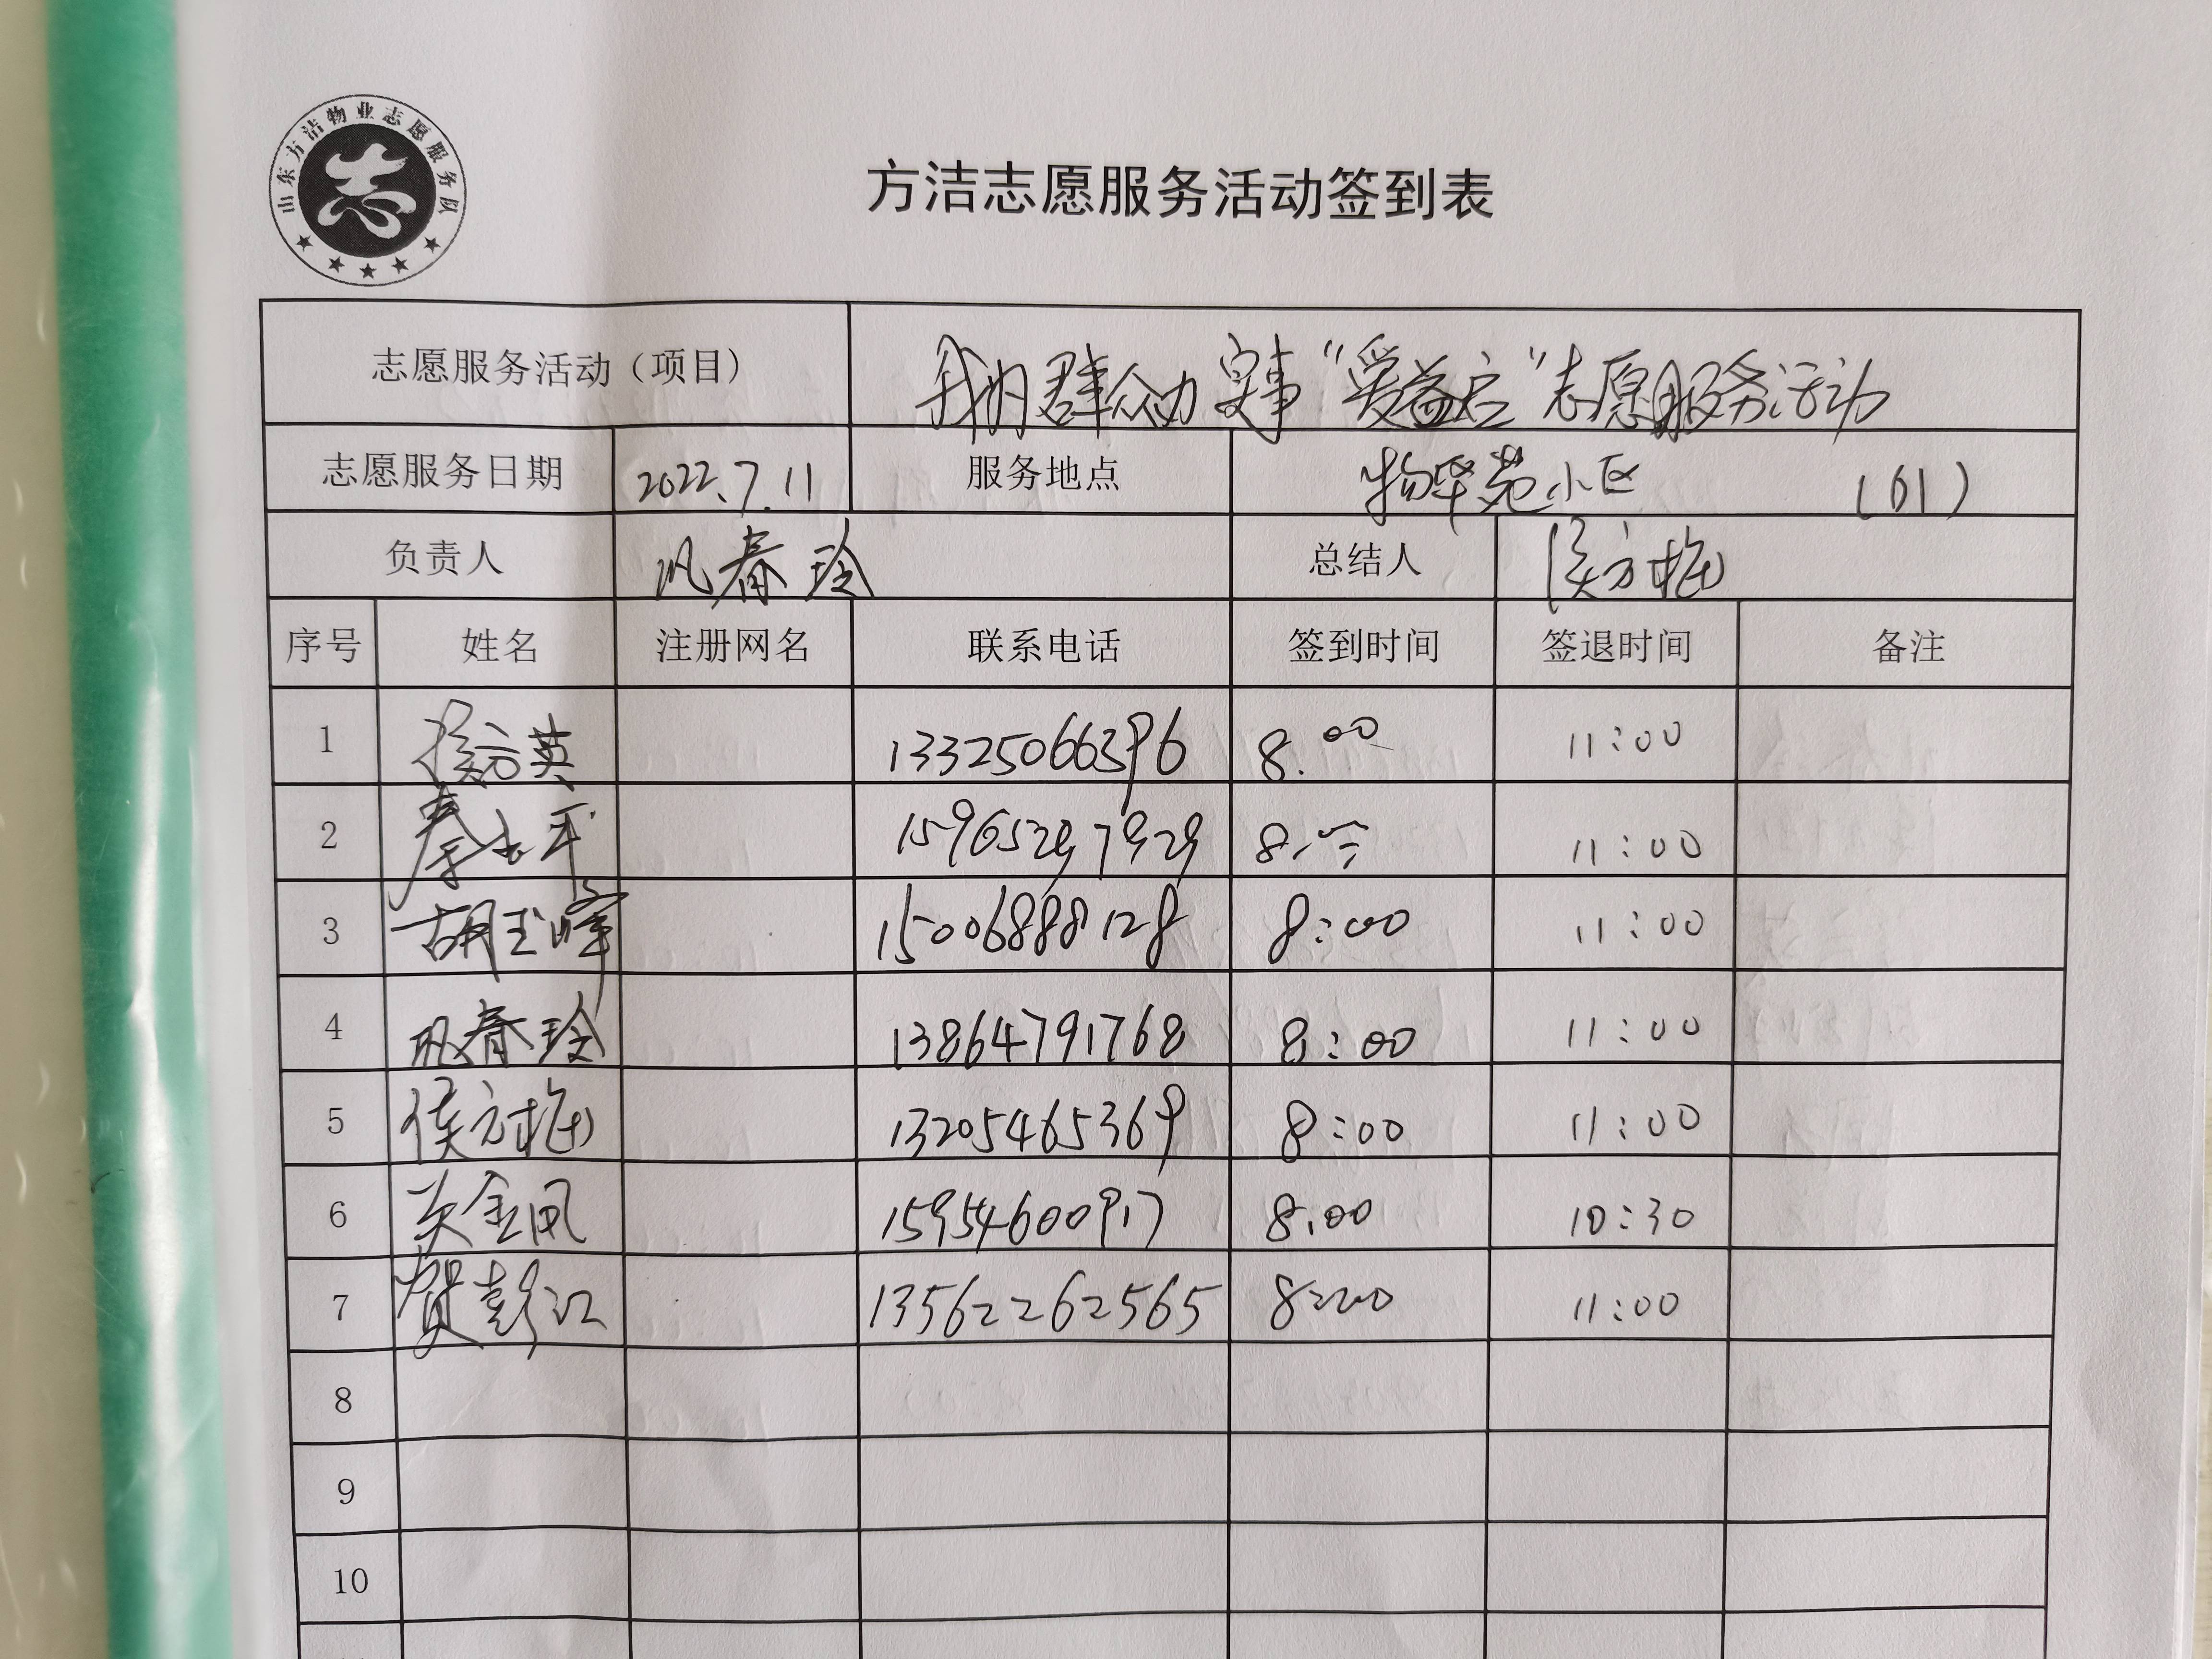 山东方洁物业志愿服务队
志
方洁志愿服务活动签到表
志愿服务活动（项目） 我为群众办实事“爱益启”志愿服务活动
志愿服务日期 2022.7.11 服务地点 物华苑小区 (61)
负责人 巩春玲 总结人 侯方梅
序号 姓名 注册网名 联系电话 签到时间 签退时间 备注
1 侯方英 13325066396 8:00 11:00
2 秦 平 15965297929 8:00 11:00
3 胡玉峰 15006888128 8:00 11:00
4 巩春玲 13864791768 8:00 11:00
5 侯方梅 13205465369 8:00 11:00
6 金凤 15954600917 8:00 10:30
7 贺彭江 13562262565 8:00 11:00
8
9
10